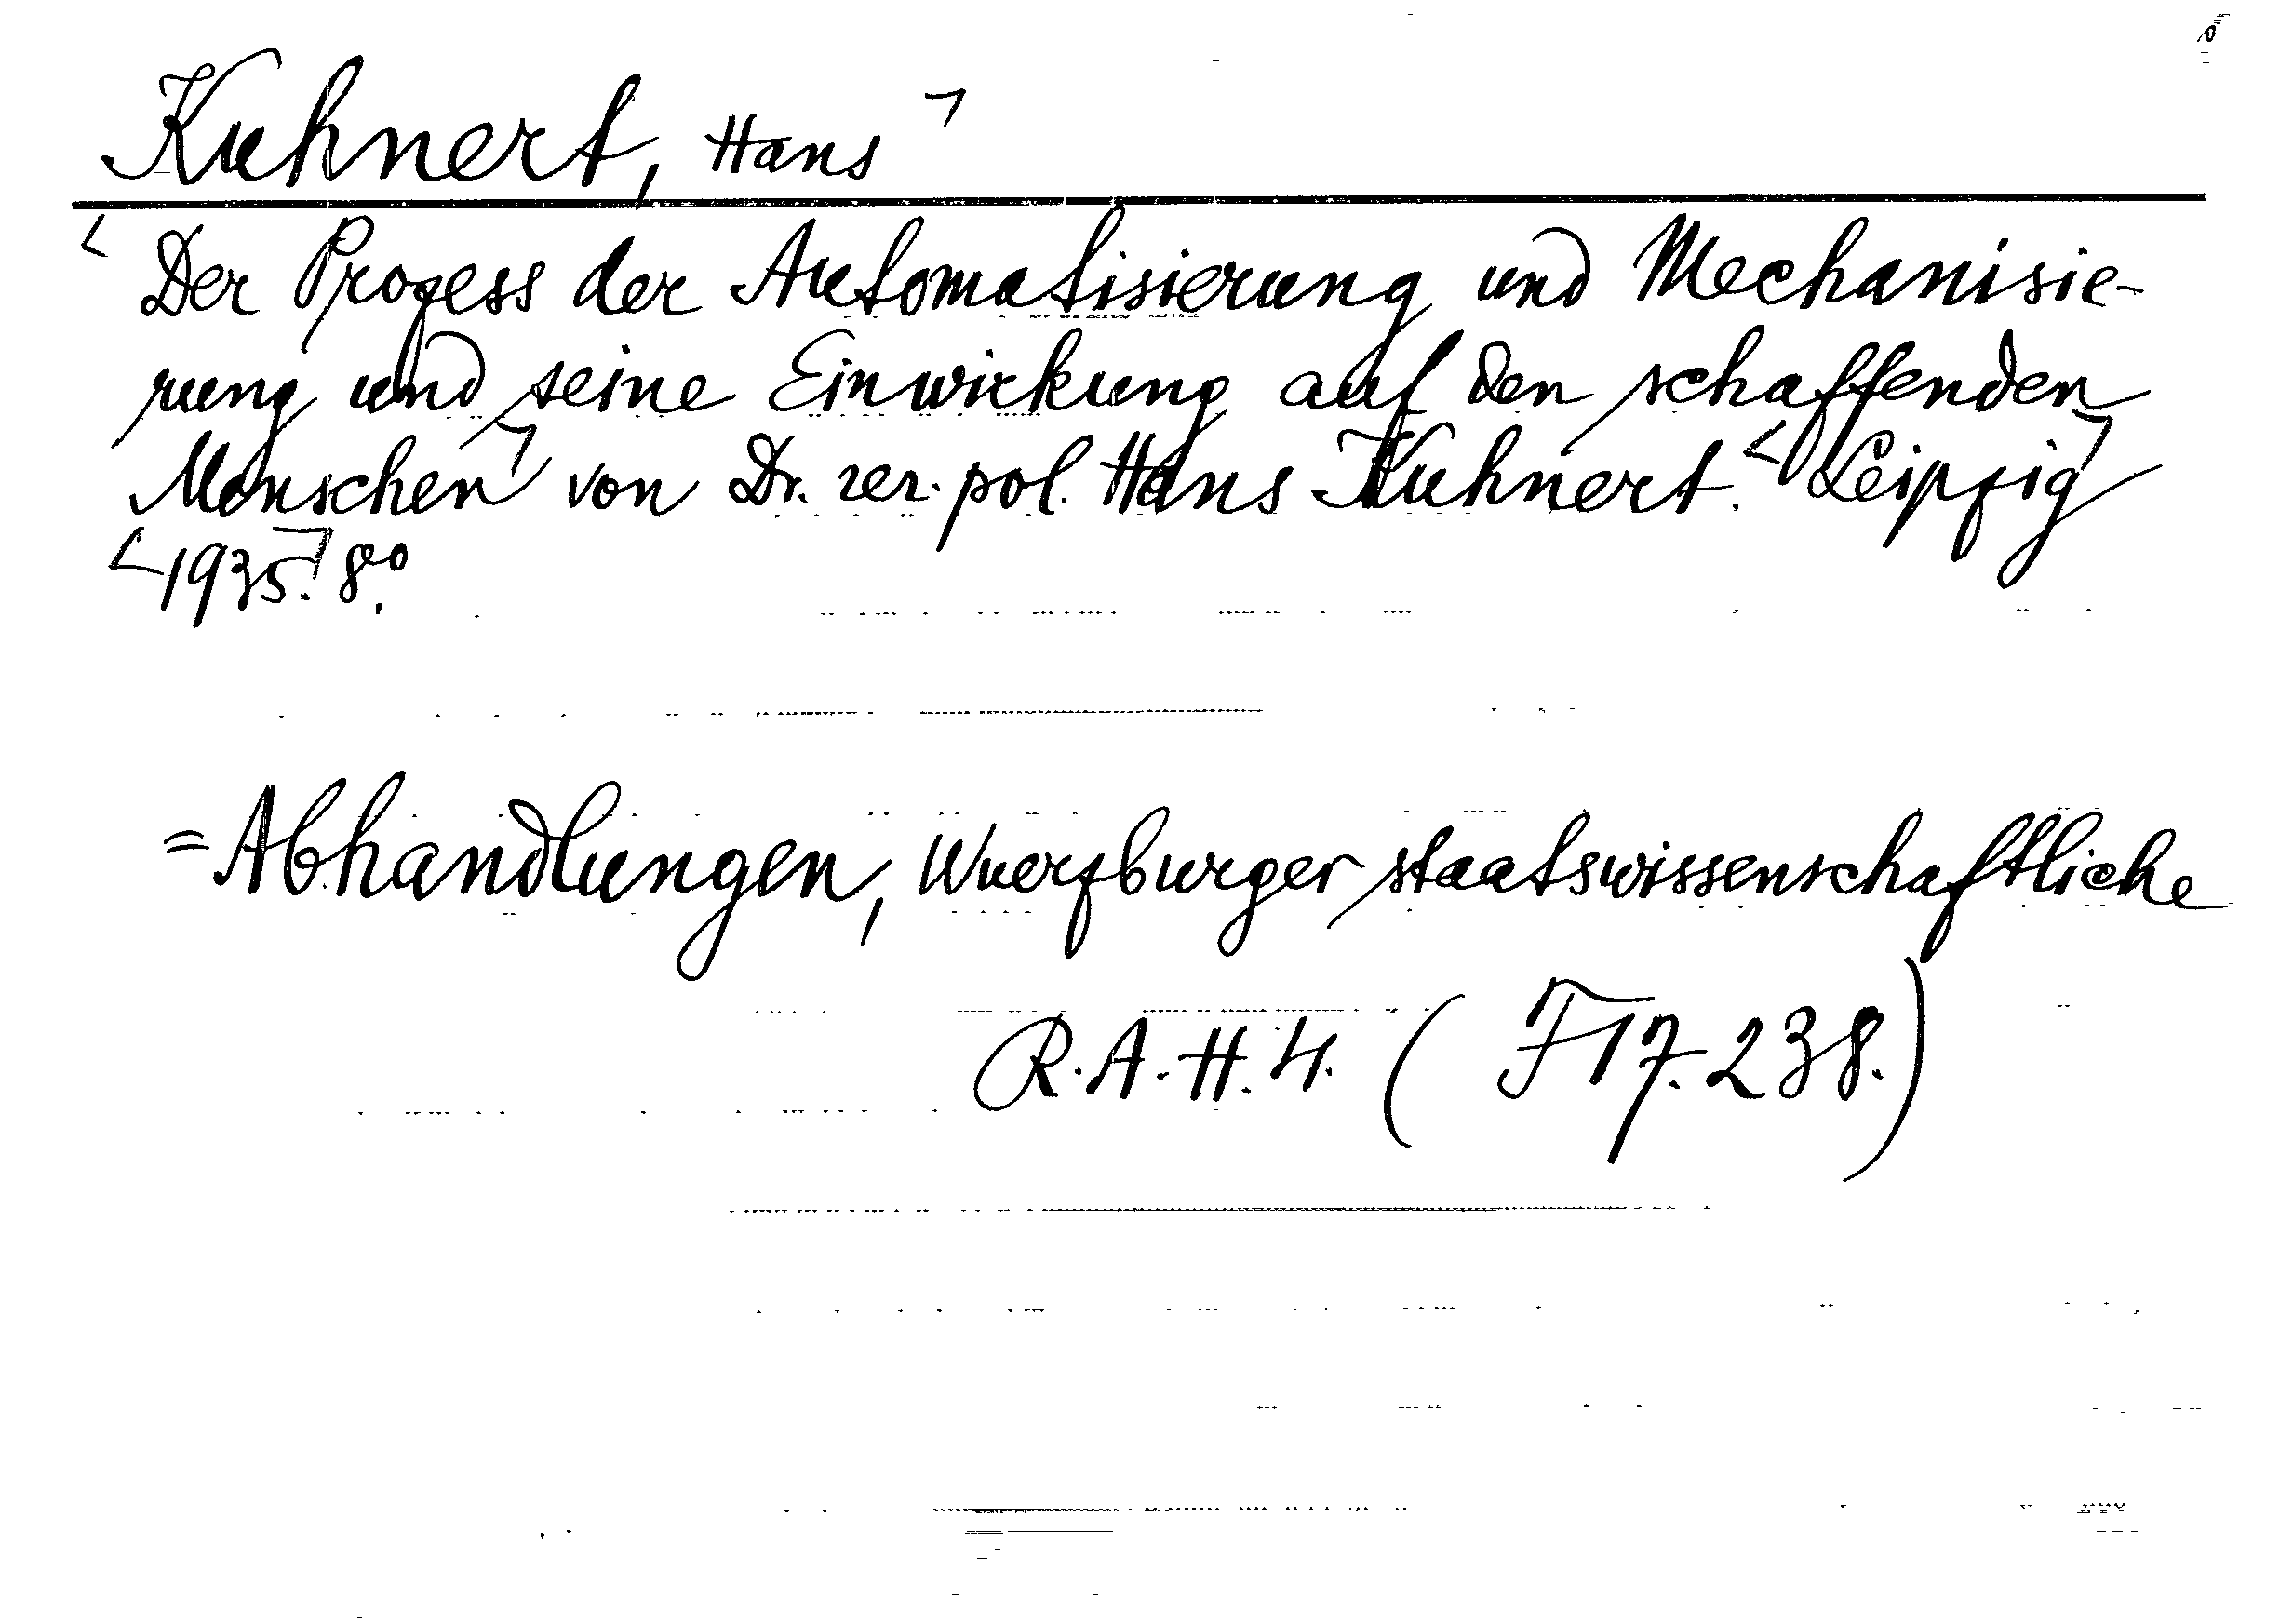 Kuhnert, Hans ¬
< Der Prozess der Automatisierung und Mechanisie-
rung und seine Einwirkung auf den schaffenden
Menschen ¬ von Dr. rer. pol. Hans Kuhnert. < Leipzig ¬
< 1935. ¬ 8º.
= Abhandlungen, Wuerzburger staatswissenschaftliche
R.A.H.4. (F17.238.)